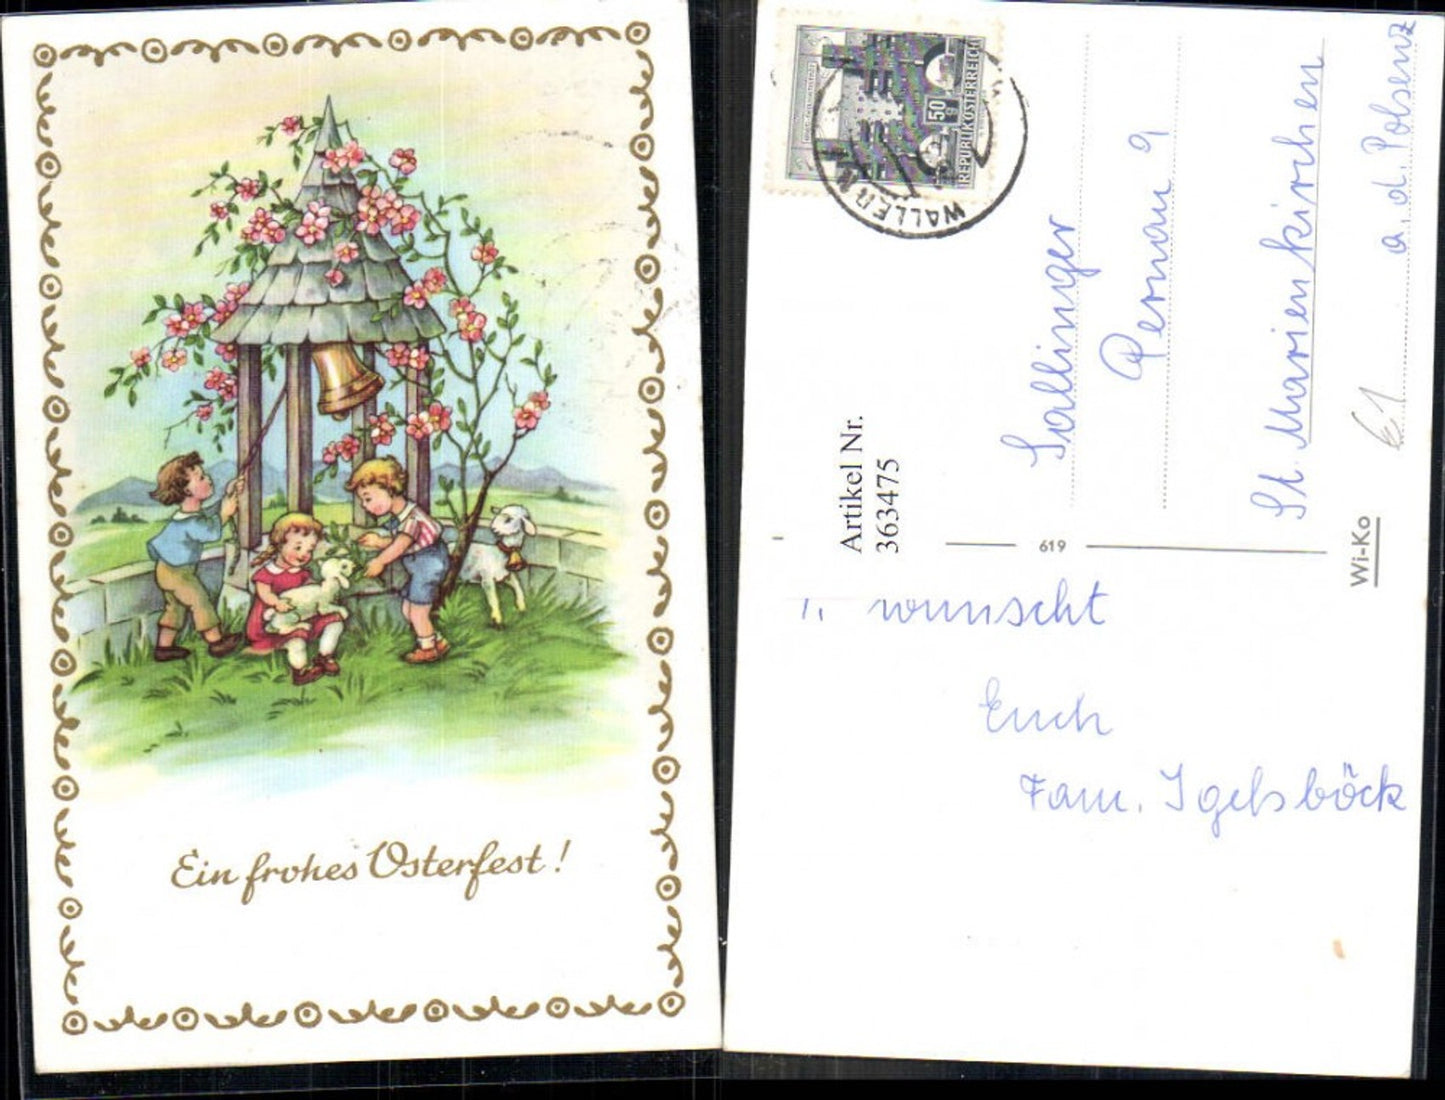 Ein frohes Osterfest!
50
g
REPUBLIK ÖSTERREICH
WALLERN
Artikel Nr.
363475
Sallinger
Pernau 9
St. Marienkirchen
a. d. Polsenz
€1
619
Wi-Ko
wunscht
Euch
Fam. Igelsböck